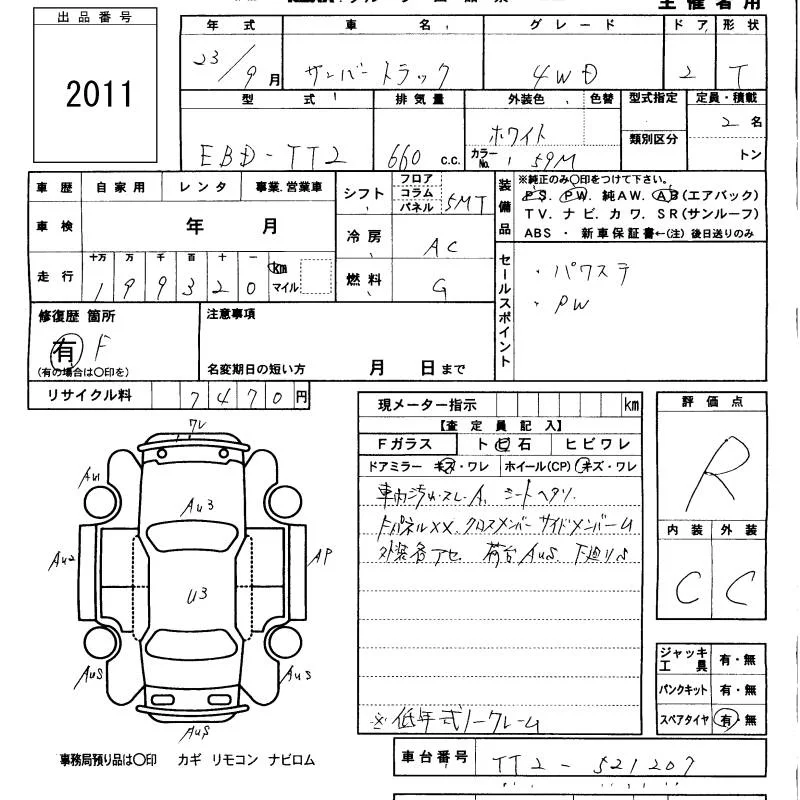 主催者用
出品番号
2011
年式 車名 グレード ドア 形状
23/9月 サンバートラック 4WD 2 T
型式 排気量 外装色 色替 型式指定 定員・積載
EBD-TT2 660 c.c. ホワイト 類別区分 2名
カラーNo. 59M トン
車歴 自家用 レンタ 事業.営業車
車検 年 月
走行 十万 万 千 百 十 一 km マイル
199320
シフト フロア コラム パネル 5MT
冷房 AC
燃料 G
装備品
※純正のみ〇印をつけて下さい。
P S. PW. 純AW. AB(エアバック)
TV. ナビ. カワ. SR(サンルーフ)
ABS ・ 新車保証書←(注) 後日送りのみ
セールスポイント
・パワステ
・PW
修復歴 箇所
有 F
(有の場合は〇印を)
注意事項
名変期日の短い方 月 日まで
リサイクル料 7470円
現メーター指示 km
【査定員記入】
Fガラス トビ石 ヒビワレ
ドアミラー キズ・ワレ ホイール(CP) キズ・ワレ
車内汚れ・スレ・A、シートヘタリ
FパネルXX、クロスメンバー サイドメンバーU
外装各アセ 荷台AuS 下廻りS
※低年式ノークレーム
評価点
R
内装 外装
C C
ワレ
Au1
Au3
Au2
AP
U3
AuS
Au3
AuS
ジャッキ工具 有・無
パンクキット 有・無
スペアタイヤ 有・無
事務局預り品は〇印 カギ リモコン ナビロム
車台番号 TT2-521207